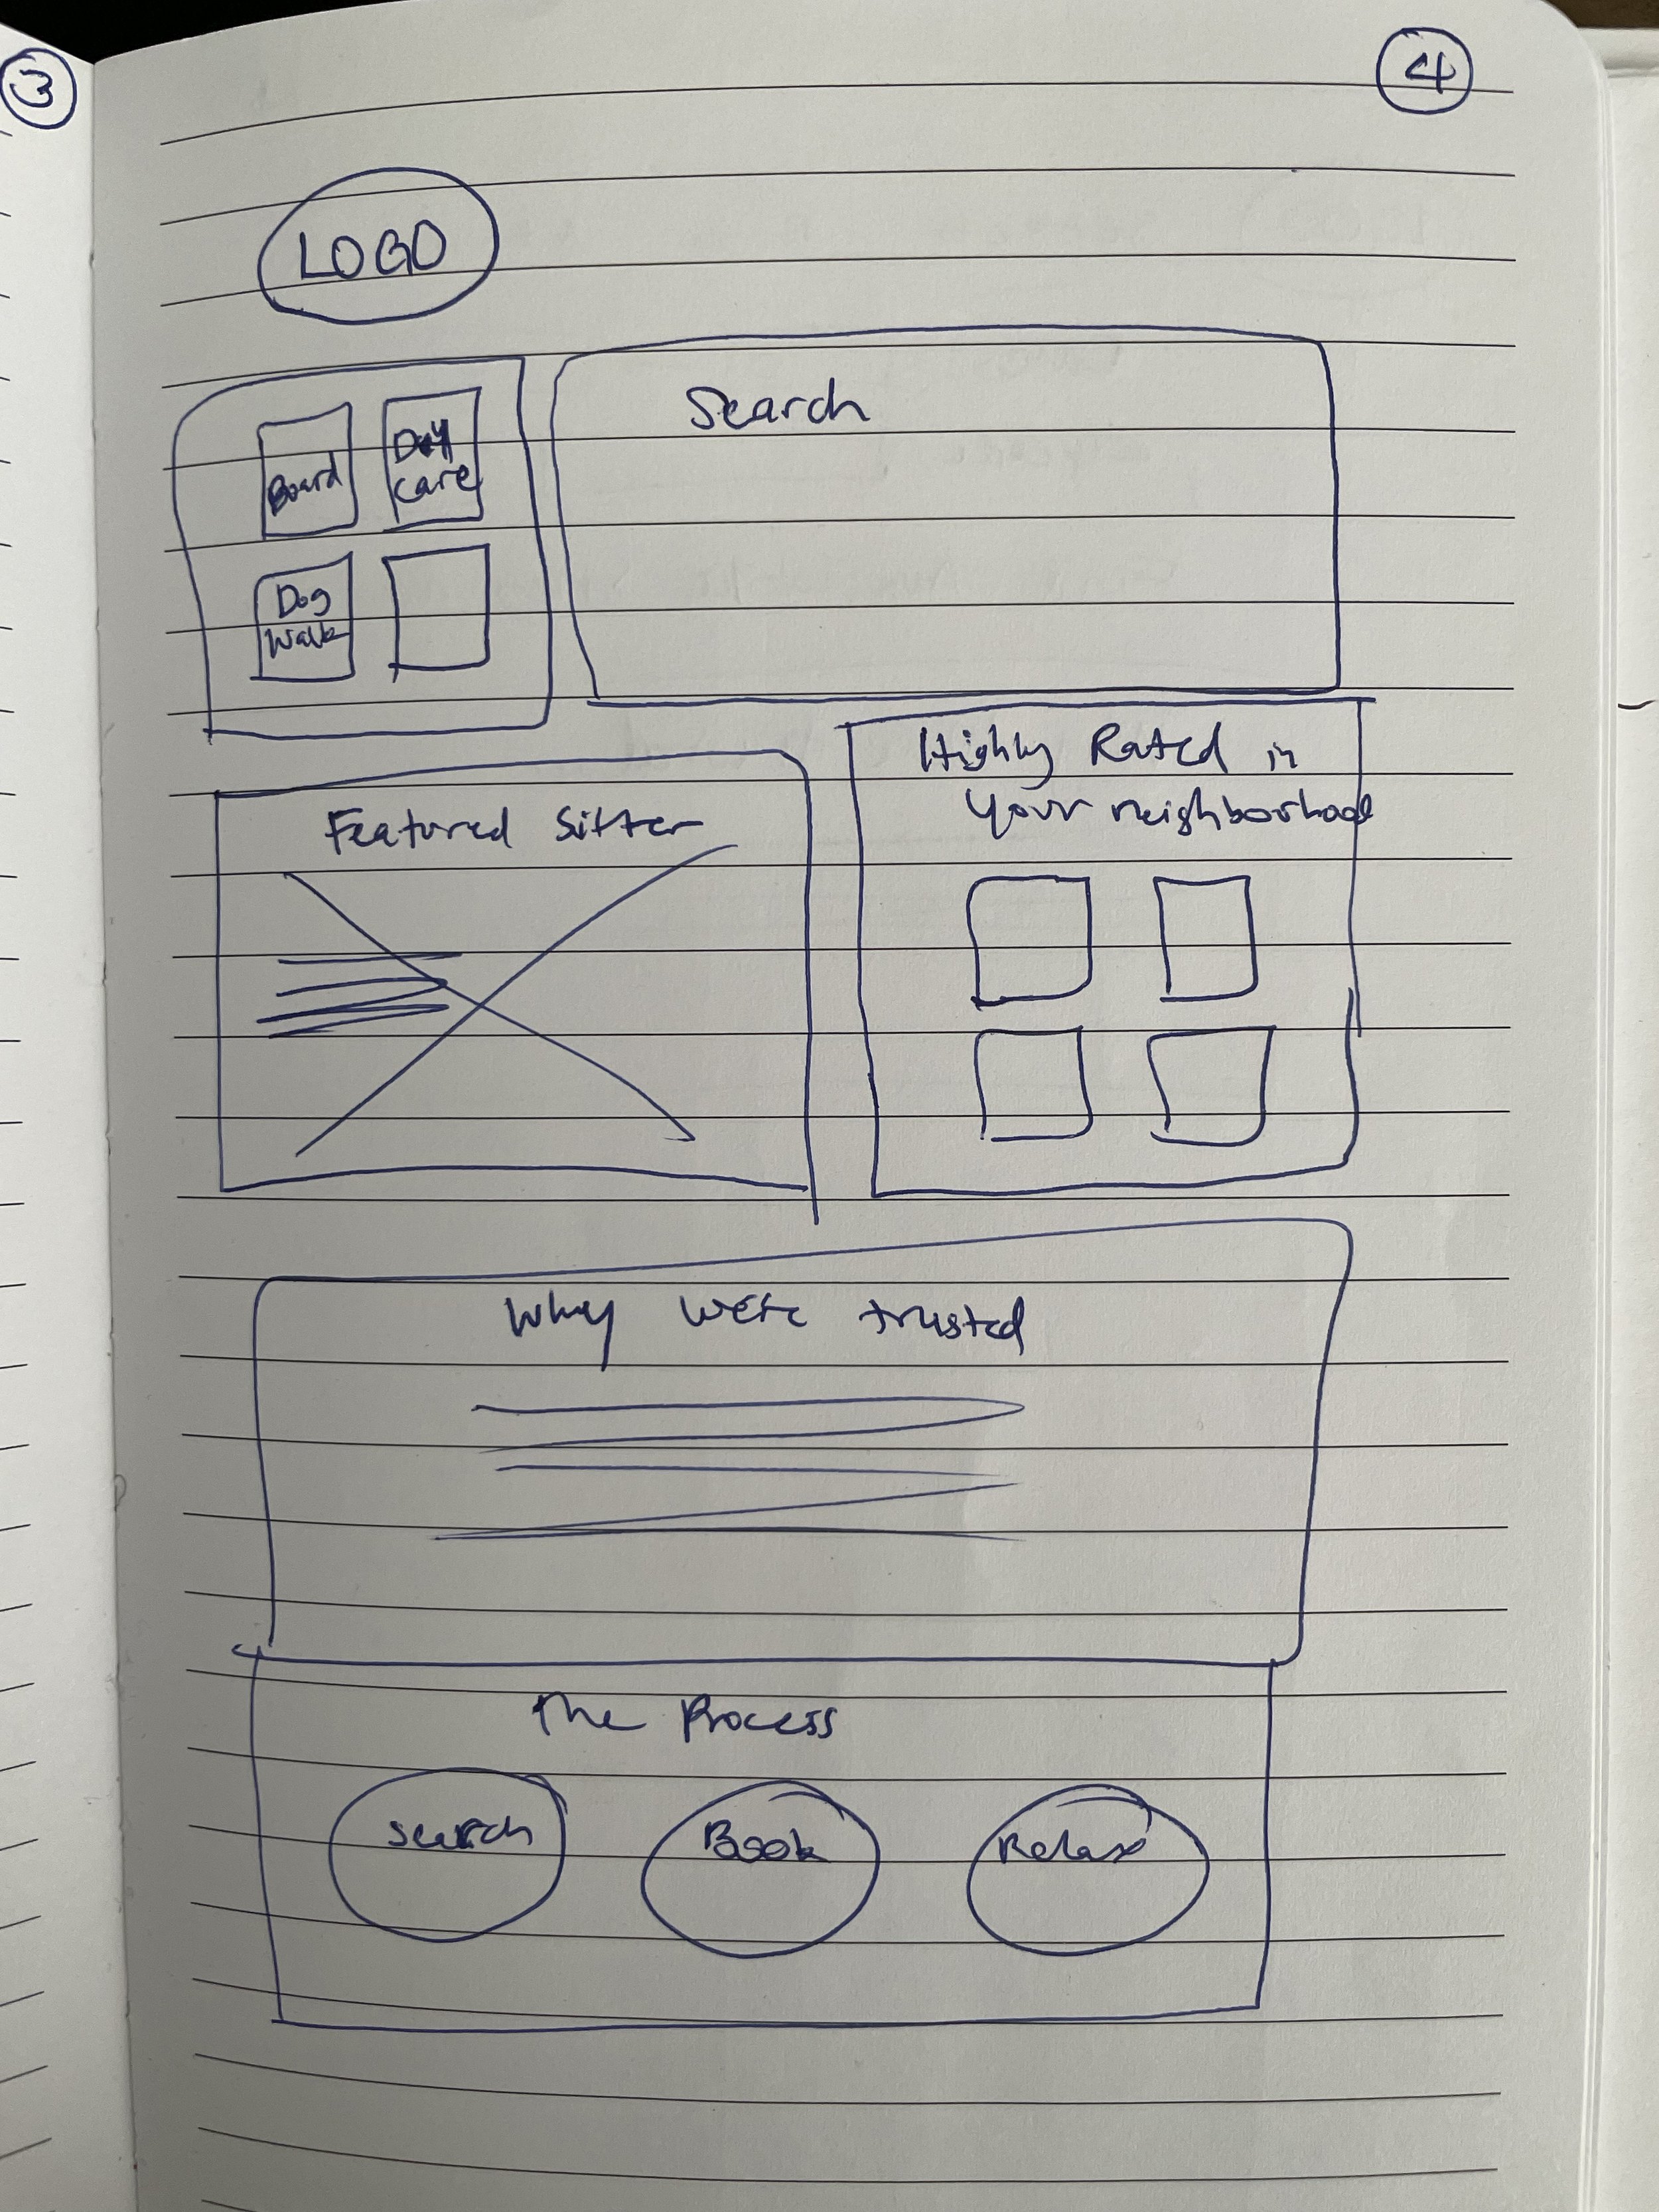 3
4
LOGO
Board
Day
care
Search
Dog
Walk
Featured Sitter
Highly Rated in
your neighborhood
Why we're trusted
The Process
search
Book
Relax